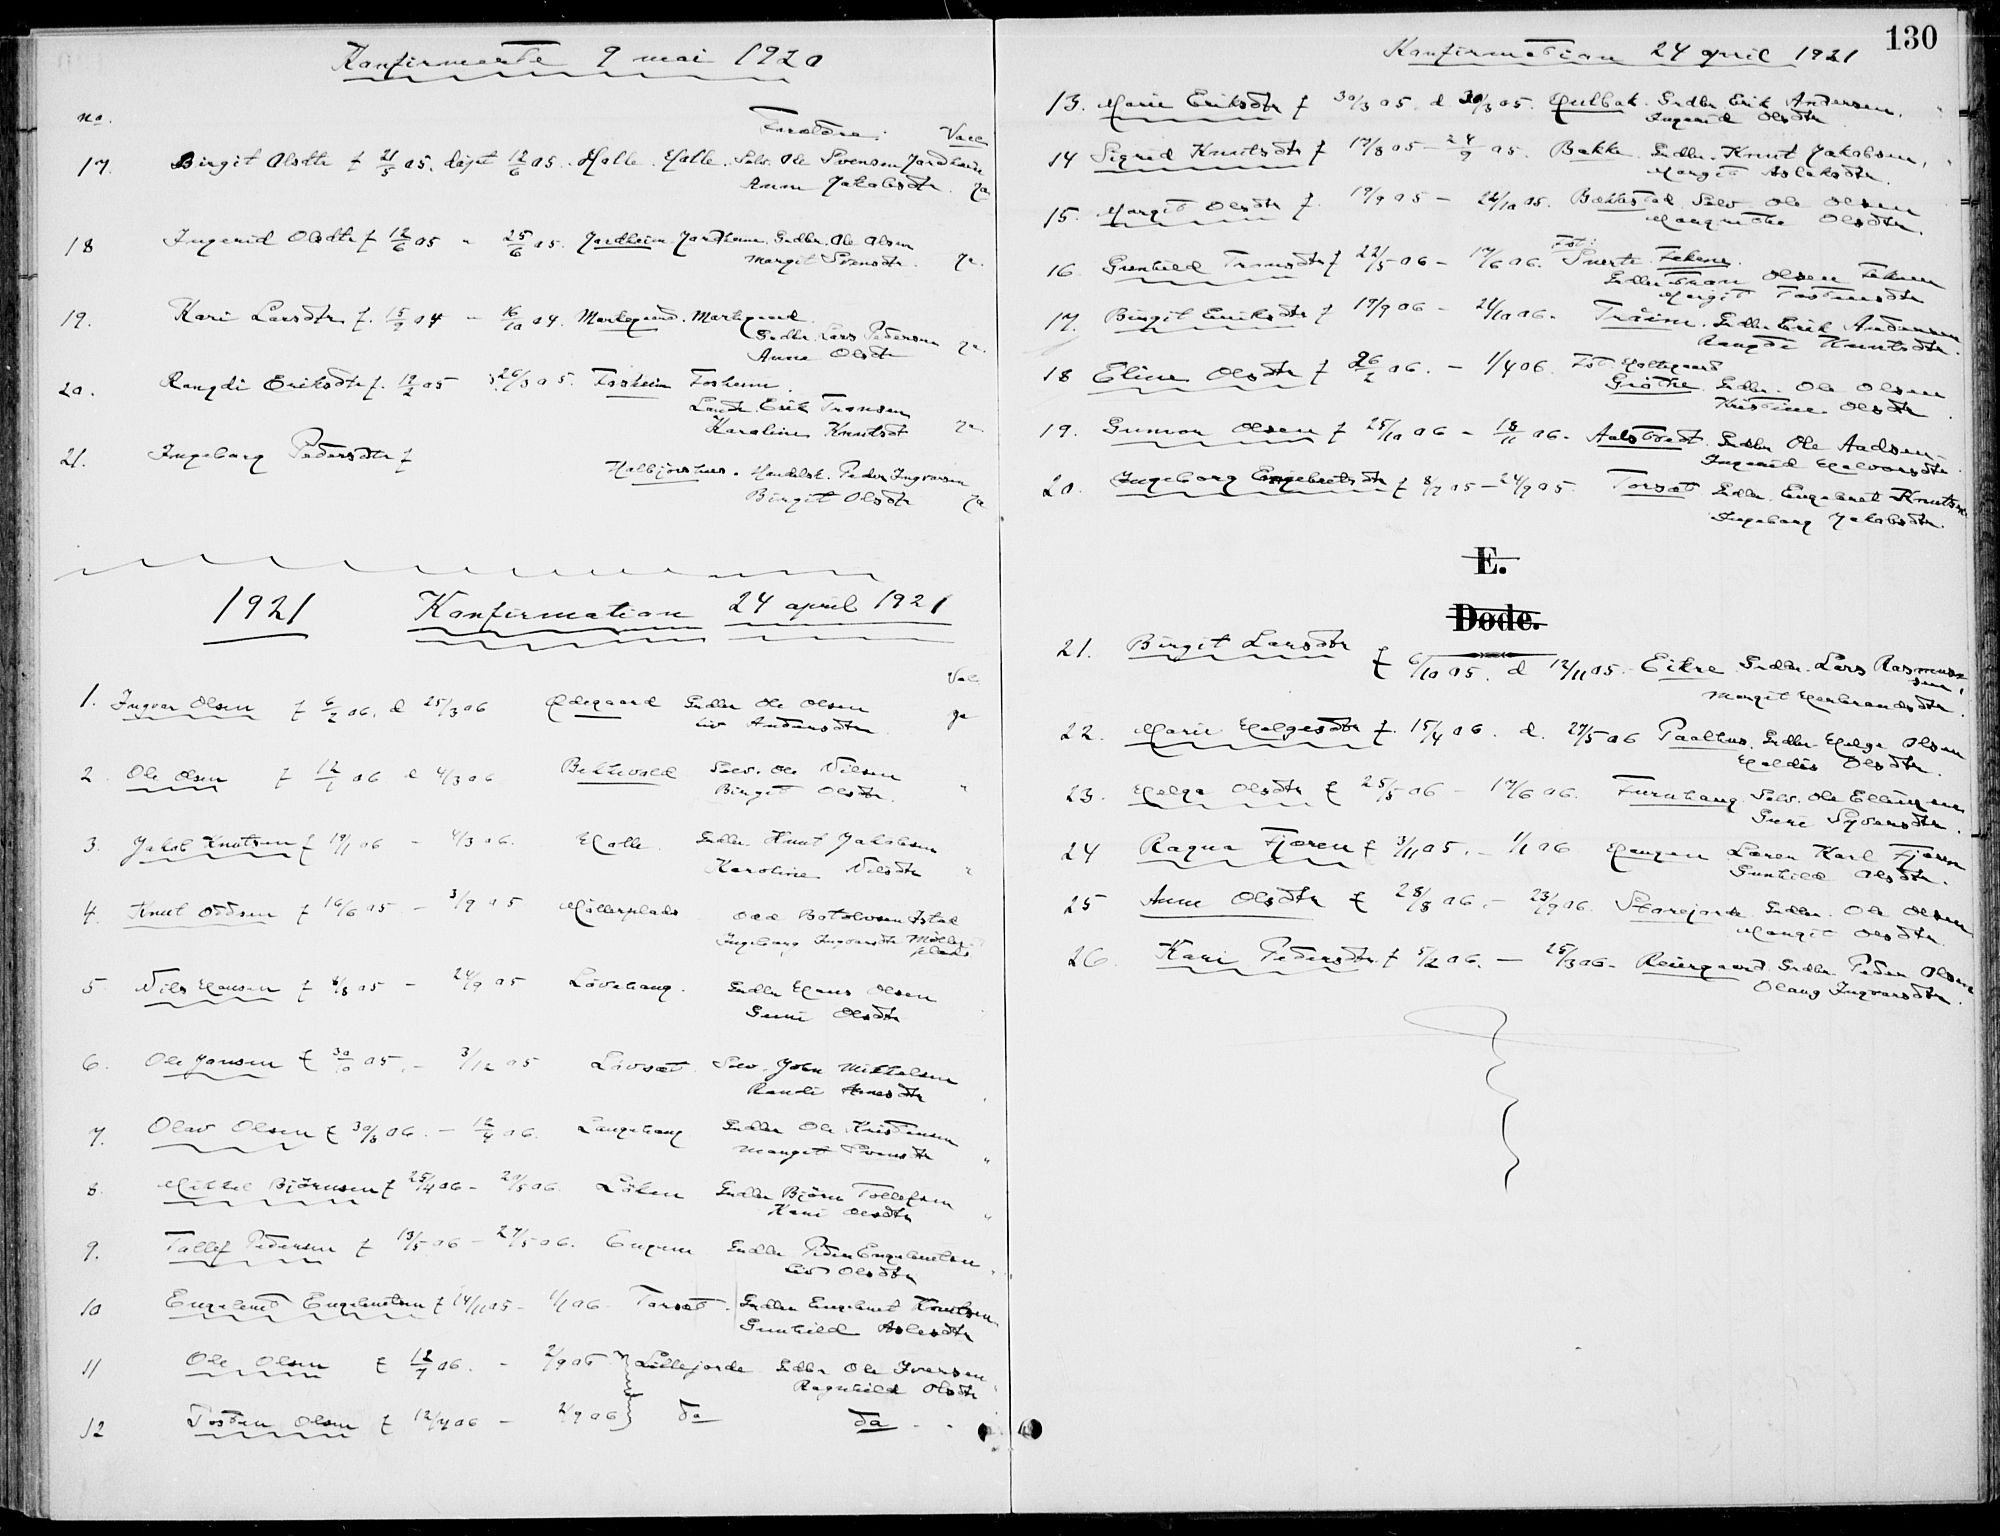 Konfirmerte 9 mai 1920
no. Forældre. Vacc.
17. Birgit Olsdtr f 21/5 05. døpt 12/6 05. Halle. Halle. Selv. Ole Svensen Jordheim
Anne Jakobsdtr. ja
18 Ingerid Olsdtr f 12/6 05 - 25/6 05. Jordheim. Jordheim. Grdbr. Ole Olsen
Margit Svensdtr. ja.
19. Kari Larsdtr. f. 15/9 04 - 16/10 04. Markegard. Markegard.
Grdbr. Lars Pedersen ja.
Anne Olsdtr
20. Rangdi Eriksdtr f. 12/2 05 26/3 05. Fosheim Fosheim.
Landh. Erik Transen
Karoline Knutsdt ja
21. Ingeborg Pedersdtr f
Halbjørshus. Handelsk. Peder Ingvarsen
Birgit Olsdtr ja
1921 Konfirmation 24 april 1921
Vac.
1. Ingvar Olsen f 6/2 06. d 25/3 06 Ødegaard Grdbr Ole Olsen ja
Liv Andersdtr
2. Ole Olsen f 12/1 06 d 4/3 06 Bekkevold Selv. Ole Nilsen "
Birgit Olsdtr.
3. Jakob Knutsen f 19/1 06 - 4/3 06. Halle. Grdbr. Knut Jakobsen
Karoline Nilsdtr "
4. Knut Oddsen f 16/6 05 - 3/9 05 Møllerplads Odd Botolvsen
Ingeborg Ingvarsdtr Møller
plads
5 Nils Hansen f 8/8 05 - 24/9 05 Løvehaug. Grdbr Hans Olsen
Guri Olsdtr
6. Ole Jonsen f 30/10 05. - 3/12 05 Løvset Selv. John Mikkelsen
Randi Arnesdtr
7. Olav Olsen f 30/3 06. - 16/4 06. Langehaug Grdbr Ole Kristensen
Margit Svensdtr "
8. Mikkel Bjørnsen f 25/4 06 - 20/5 06. Løken Grdbr Bjørn Tollefsen
Kari Olsdtr "
9. Tollef Pedersen f 13/5 06 - 27/5 06. Grdbr Peder Engebretsen
Liv Olsdtr
10 Engebret Engebretsen f 14/11 05 - 1/1 06 - Torset. Grdbr Engebret Knutsen
Gunhild Aslesdtr
11 Ole Olsen f 12/7 06. - 2/9 06 Lillejorde Grdbr Ole Iversen
Ragnhild Olsdtr
12 Tosten Olsen f 12/7 06 - 2/9 06 do do - -
130
Konfirmation 24 april 1921
13. Marie Eriksdtr f 30/3 05. d 30/3 05. Hulbak. Grdbr. Erik Andersen.
Ingerid Olsdtr
14 Sigrid Knutsdtr f 17/8 05 - 24/9 05. Bakke Grdbr. Knut Jakobsen,
Margit Aslaksdtr.
15. Margit Olsdtr f. 19/9 05 - 22/10 05. Bakkestad Selv Ole Olsen
Margrethe Olsdtr.
16. Gunhild Transdtr f 22/5 06 - 17/6 06. Fst: Snerte Fekene.
Grdbr Tron Olsen Feken
Margit Tostensdtr
17. Birgit Eriksdtr f 17/9 06 - 21/10 06. Tråim. Grdbr. Erik Andersen
Rangdi Knutsdtr.
18 Eline Olsdtr f 26/2 06. - 1/4 06. Fst Holtegaard
Grøthe Grdbr. Ole Olsen
Kristine Olsdtr
19. Gunvor Olsen f 25/10 06 - 18/11 06. Aalstveit Grdbr Ole Aadsen
Ingerid Halvorsdtr
20. Ingeborg Engebretsdtr f 8/7 05 - 24/9 05. Torset Grdbr. Engebret Knutsen
Ingeborg Jakobsdtr.
E.
Døde.
21. Birgit Larsdtr f 6/10 05. d 12/11 05. Eikre Grdbr. Lars Rasmus
sen,
Margit Herbrandsdtr.
22. Marie Helgesdtr f. 15/4 06. d. 27/5 06 Paalhus. Grdbr Helge Olsen
Haldis Olsdtr.
23. Helga Olsdtr f 25/5 06 - 17/6 06. Furuhaug. Selv. Ole Ellingsen
Guri Syversdtr.
24 Ragna Fjæren f 3/11 05. - 1/1 06 Haugen Lærer Karl Fjæren
Gunhild Olsdtr.
25 Anne Olsdtr f 28/8 06. - 23/9 06. Storejorde Grdbr. Ole Olsen
Margit Olsdtr.
26. Kari Pedersdtr. f 5/2 06. - 25/3 06. Reiergaard Grdbr. Peder Olsen
Olaug Ingvarsdtr.